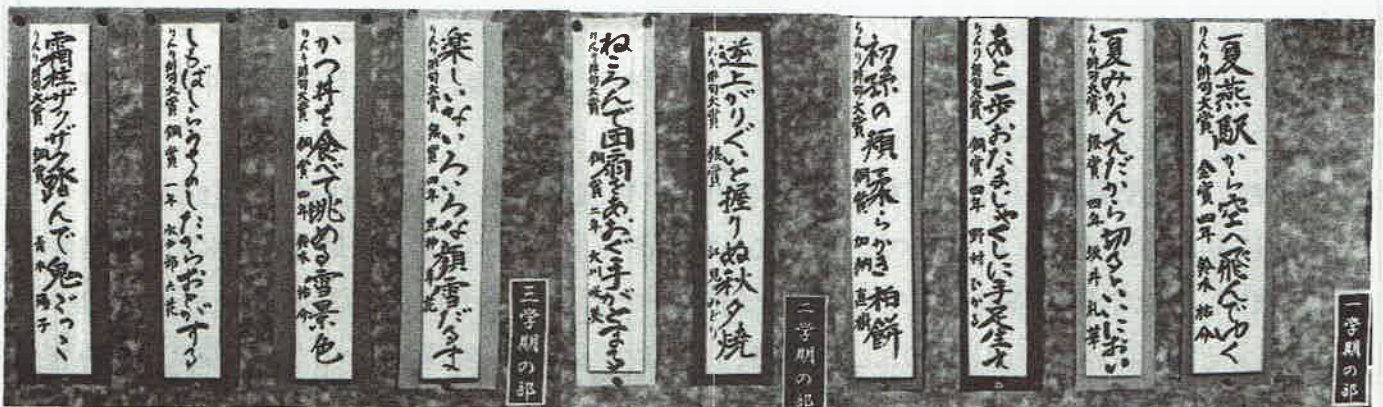 一学期の部
夏燕駅から空へ飛んでゆく
りんり俳句大賞 金賞 四年 鈴木祐介
夏みかんえだから切るといいにおい
りんり俳句大賞 銀賞 四年 礼華
あと一歩おたまじゃくしに手足生え
りんり俳句大賞 銅賞 四年 野村ひかる
初孫の頬柔らかき柏餅
りんり俳句大賞 銅賞 加納直樹
二学期の部
逆上がりぐいと握りぬ秋夕焼
りんり俳句大賞 銀賞 みどり
ねころんで団扇をあおぐ手がとまる
りんり俳句大賞 銅賞 二年 大川咲美
三学期の部
楽しいないろいろな顔雪だるま
りんり俳句大賞 銀賞 四年
かつ丼を食べて眺める雪景色
りんり俳句大賞 銅賞 四年 鈴木祐介
しもばしらうちゅうしたからおとがする
りんり俳句大賞 銅賞 一年
霜柱ザクザク踏んで鬼ごっこ
りんり俳句大賞 銅賞 青木陽子